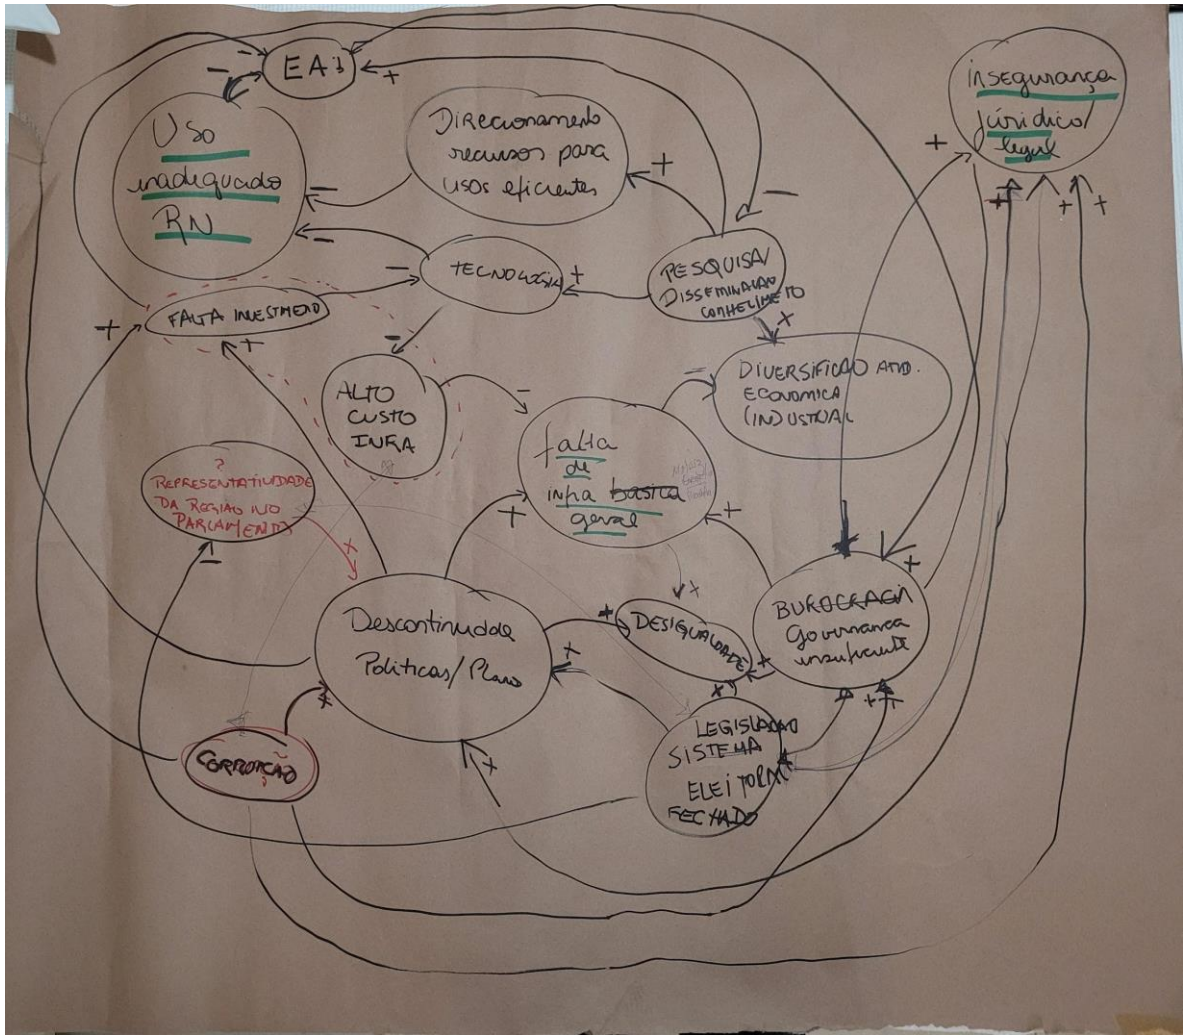 EA
Uso
inadequado
RN
Direcionamento
recursos para
usos eficientes
insegurança
júridico/
legal
TECNOLOGIA
PESQUISA/
DISSEMINACAO
CONHECIMETO
FALTA INVESTIMETO
ALTO
CUSTO
INFRA
falta
de
infra basica
geral
DIVERSIFICAO ATIVD.
ECONOMICA
(INDUSTRIAL
?
REPRESENTATIVIDADE
DA REGIÃO NO
PARLAMENTO
Descontinuidde
Politicas/Plano
DESIGUALDADE
BUROCRACIA
Governanca
insuficiente
CORRUPÇÃO
LEGISLACAO
SISTEMA
ELEITORAL
FECHADO